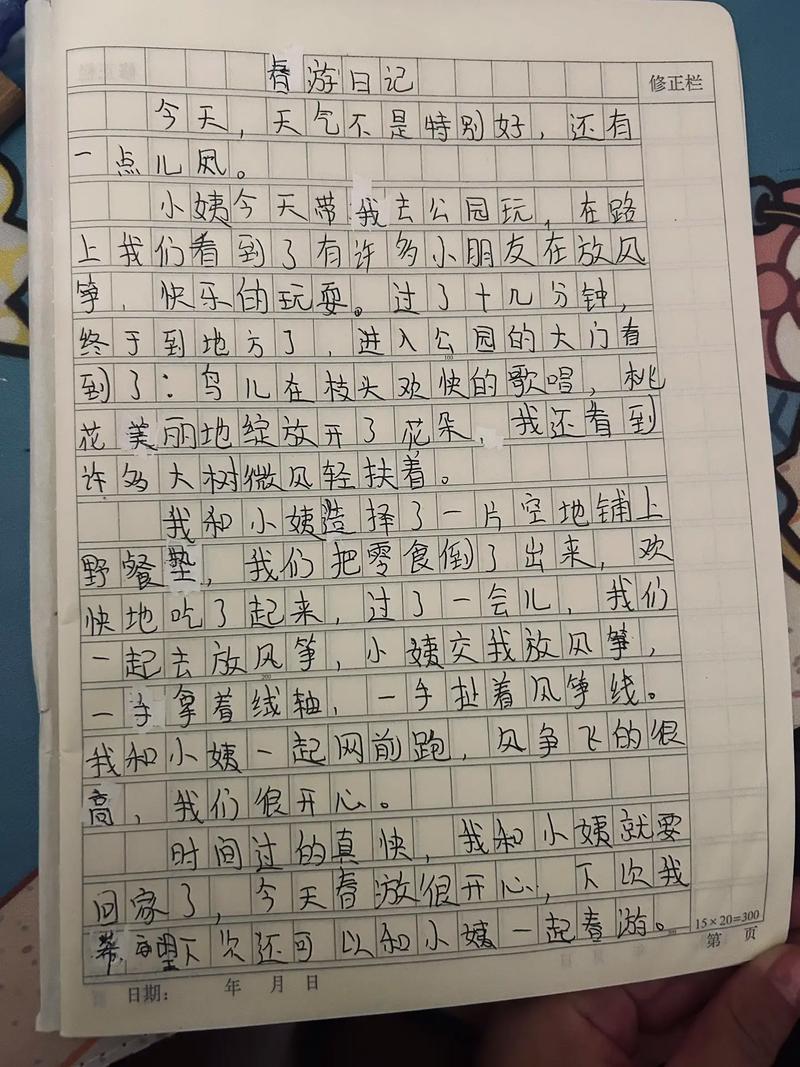 春游日记
修正栏
今天，天气不是特别好，还有
一点儿风。
小姨今天带我去公园玩，在路
上我们看到了有许多小朋友在放风
筝，快乐的玩耍。过了十几分钟，
终于到地方了，进入公园的大门看
到了：鸟儿在枝头欢快的歌唱，桃
花美丽地绽放开了花朵，我还看到
许多大树微风轻扶着。
我和小姨选择了一片空地铺上
野餐垫，我们把零食倒了出来，欢
快地吃了起来，过了一会儿，我们
一起去放风筝，小姨交我放风筝，
一手拿着线轴，一手扯着风筝线。
我和小姨一起网前跑，风争飞的很
高，我们很开心。
时间过的真快，我和小姨就要
回家了，今天春放很开心，下次我
希望下次还可以和小姨一起春游。
15×20=300
第 页
日期： 年 月 日
100
200